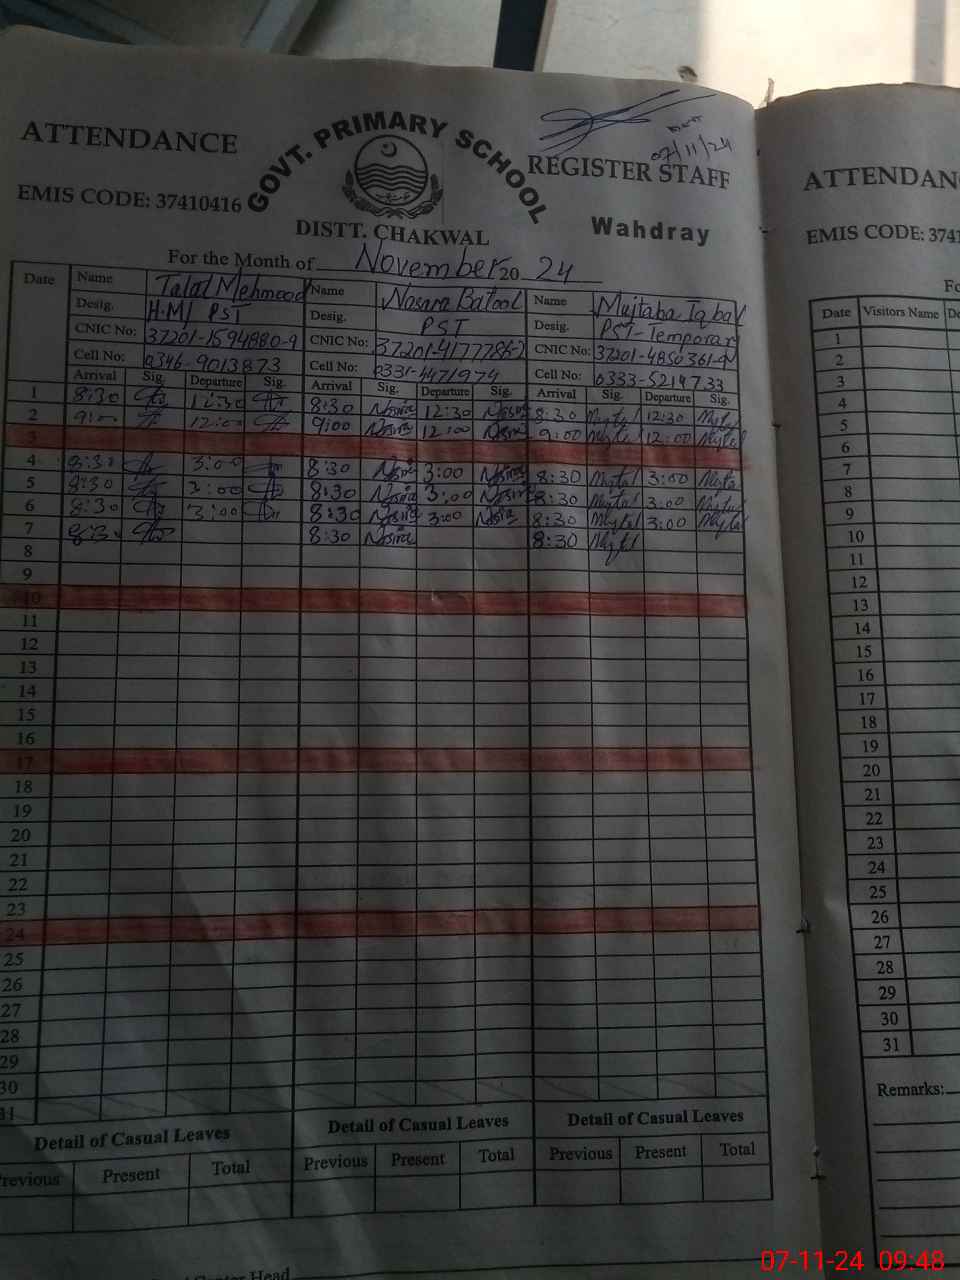 GOVT. PRIMARY SCHOOL
ATTENDANCE
REGISTER STAFF
07/11/24
EMIS CODE: 37410416
DISTT. CHAKWAL
Wahdray
For the Month of November 20 24
Date Name Talat Mehmood Name Nosara Batool Name Mujtaba Iqbal
Desig. H.M/ PST Desig. PST Desig. PST-Temporary
CNIC No: 37201-1594880-9 CNIC No: 37201-4177786-2 CNIC No: 37201-4850361-9
Cell No: 0346-9013873 Cell No: 0331-4471974 Cell No: 0333-5214733
Arrival Sig. Departure Sig. Arrival Sig. Departure Sig. Arrival Sig. Departure Sig.
1 8:30 12:30 8:30 12:30 8:30 12:30
2 9:00 12:00 9:00 12:00 9:00 12:00
3
4 8:30 3:00 8:30 3:00 8:30 3:00
5 8:30 3:00 8:30 3:00 8:30 3:00
6 8:30 3:00 8:30 3:00 8:30 3:00
7 8:30 8:30 8:30
8
9
10
11
12
13
14
15
16
17
18
19
20
21
22
23
24
25
26
27
28
29
30
31
Detail of Casual Leaves Detail of Casual Leaves Detail of Casual Leaves
Previous Present Total Previous Present Total Previous Present Total
Head
ATTENDAN
EMIS CODE: 3741
Fo
Date Visitors Name De
1
2
3
4
5
6
7
8
9
10
11
12
13
14
15
16
17
18
19
20
21
22
23
24
25
26
27
28
29
30
31
Remarks:
07-11-24 09:48